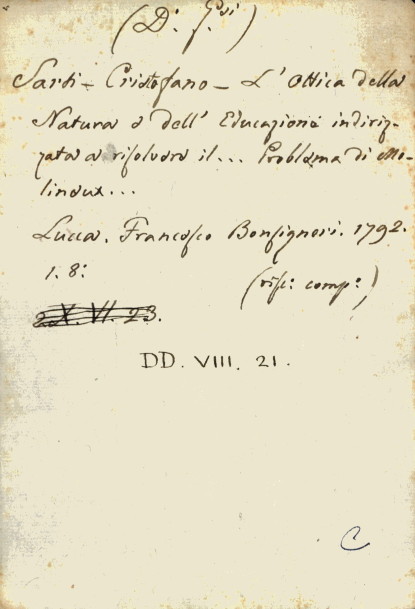 (D.
Sarti - Cristofano - L'Ottica della
Natura e dell'Educazione indiriz-
zata a risolvere il... Problema di Mo-
lineux...
Lucca. Francesco Bonsignori. 1792.
1. 8.°
(risc.° comp.°)
2X. VI. 23.
DD. VIII. 21.
C